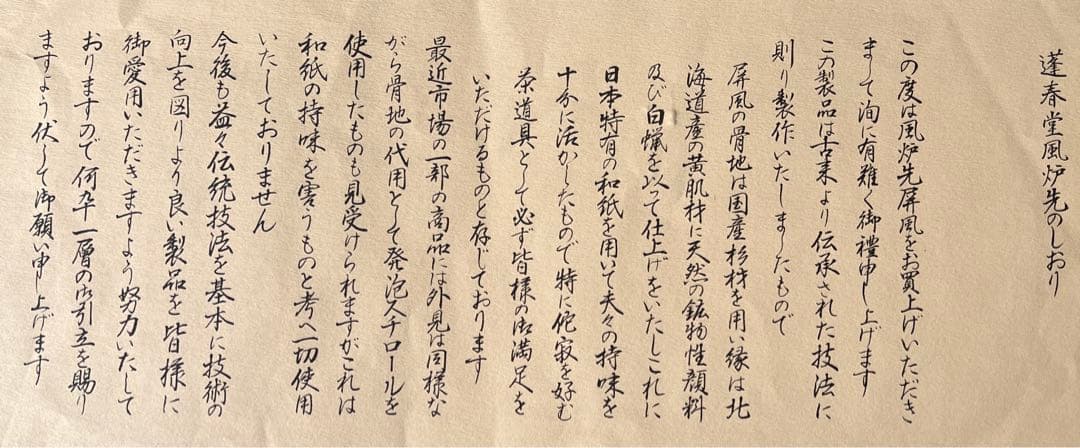 蓬春堂風炉先のしおり
この度は風炉先屏風をお買上げいただき
まして洵に有難く御禮申し上げます
この製品は古来より伝承された技法に
則り製作いたしましたもので
屏風の骨地は国産杉材を用い縁は北
海道産の黄肌材に天然の鉱物性顔料
及び白蝋を以って仕上げをいたしこれに
日本特有の和紙を用いて夫々の持味を
十分に活かしたもので特に侘寂を好む
茶道具として必ず皆様の御満足を
いただけるものと存じております
最近市場の一部の商品には外見は同様な
がら骨地の代用として発泡スチロールを
使用したものも見受けられますがこれは
和紙の持味を害うものと考へ一切使用
いたしておりません
今後も益々伝統技法を基本に技術の
向上を図りより良い製品を皆様に
御愛用いただきますよう努力いたして
おりますので何卒一層の御引立を賜り
ますよう伏して御願い申し上げます